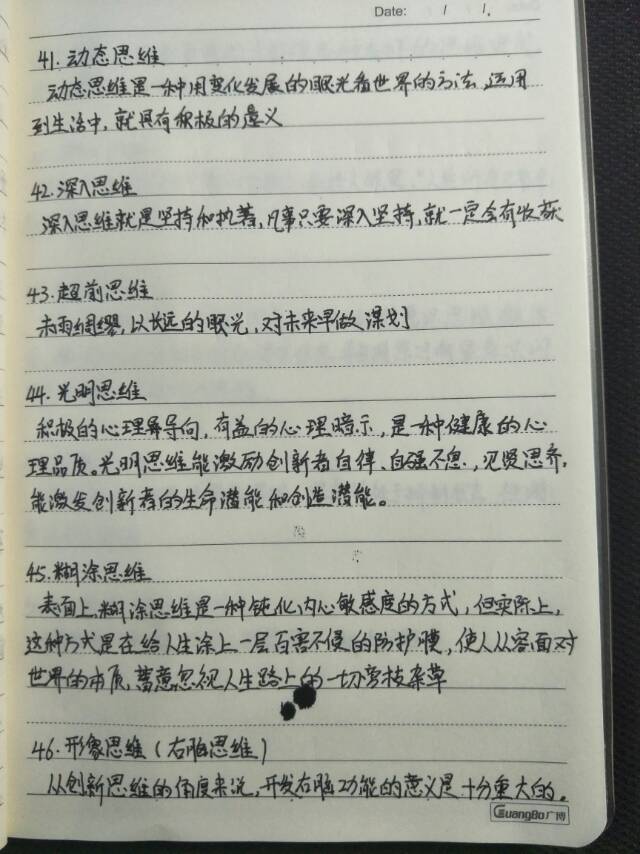 Date: / /.
41. 动态思维
动态思维是一种用变化发展的眼光看世界的方法,运用
到生活中,就具有积极的意义
42.深入思维
深入思维就是坚持和执著,凡事只要深入坚持,就一定会有收获
43.超前思维
未雨绸缪,以长远的眼光,对未来早做谋划
44.光明思维
积极的心理导向,有益的心理暗示,是一种健康的心
理品质。光明思维能激励创新者自律、自强不息,见贤思齐,
能激发创新者的生命潜能和创造潜能。
45.糊涂思维
表面上,糊涂思维是一种钝化内心敏感度的方式,但实际上,
这种方式是在给人生涂上一层百害不侵的防护膜,使人从容面对
世界的本质,蓄意忽视人生路上的一切旁枝杂草
46.形象思维(右脑思维)
从创新思维的角度来说,开发右脑功能的意义是十分重大的。
GuangBo广博